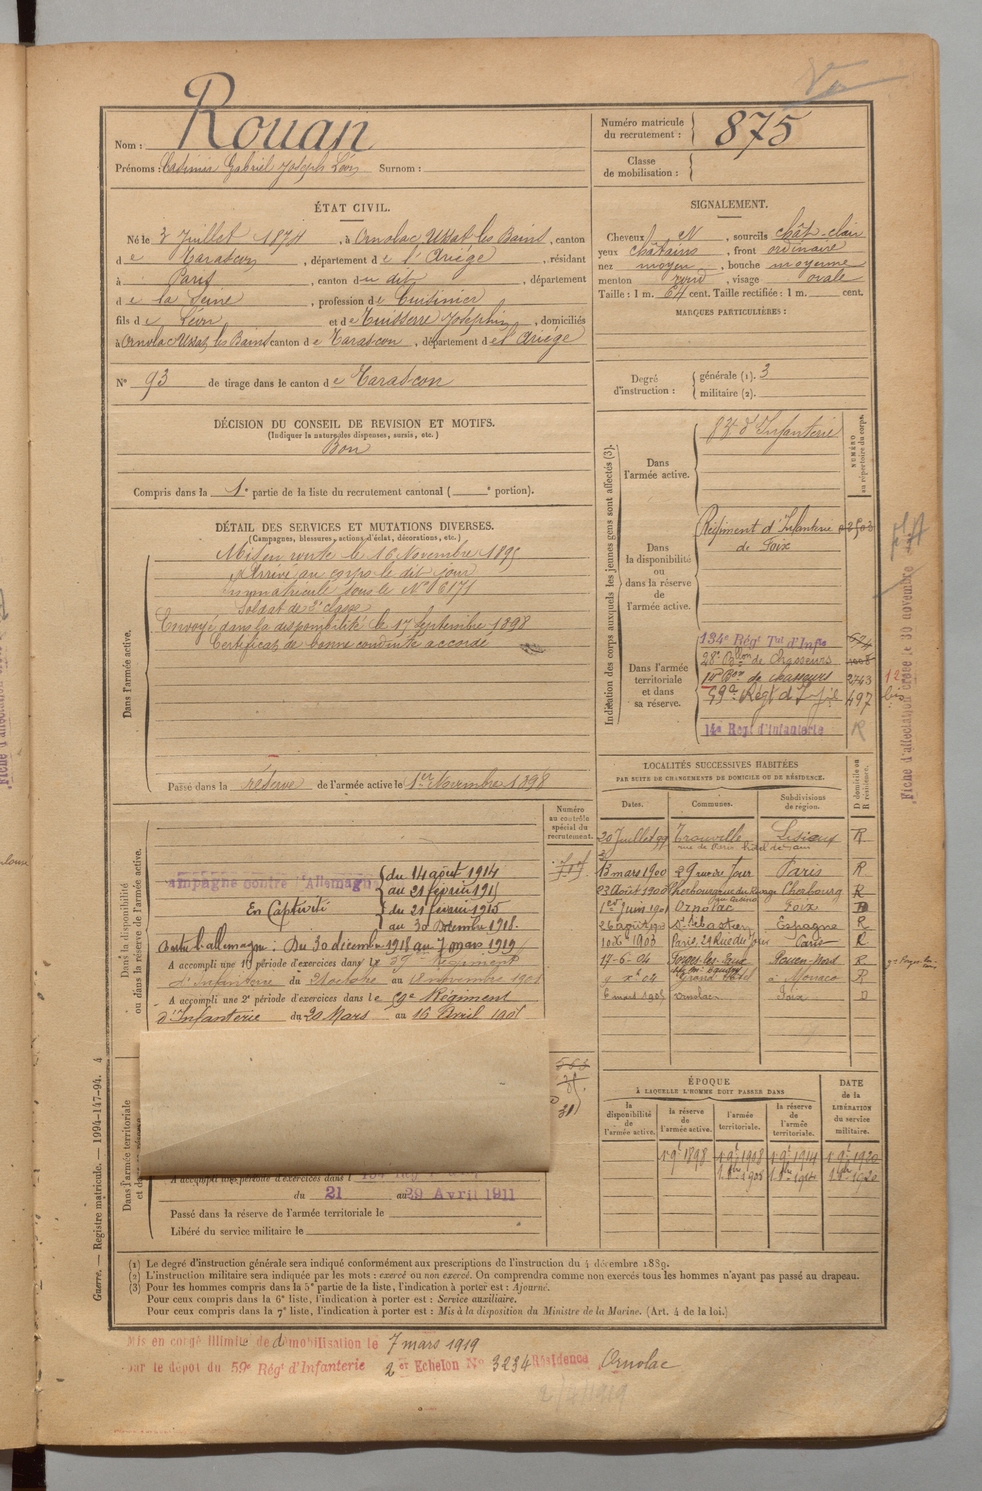 Nom : Rouan
Prénoms : Casimir Gabriel Joseph Léon Surnom :
Numéro matricule du recrutement : 875
Classe de mobilisation :
ÉTAT CIVIL.
Né le 3 Juillet 1874, à Ornolac, Ussat, les Bains, canton
de Tarascon, département de l'Ariége, résidant
à Paris, canton du dit, département
de la Seine, profession de Cuisinier
fils de Léon et de Tuisserre Joséphine, domiciliés
à Ornolac Ussat, les Bains canton de Tarascon, département de l'Ariége
N° 93 de tirage dans le canton de Tarascon
SIGNALEMENT.
Cheveux N, sourcils chât-clair
yeux châtains, front ordinaire
nez moyen, bouche moyenne
menton rond, visage ovale
Taille : 1 m. 64 cent. Taille rectifiée : 1 m. cent.
MARQUES PARTICULIÈRES :
Degré d'instruction : générale (1). 3
militaire (2).
DÉCISION DU CONSEIL DE REVISION ET MOTIFS.
(Indiquer la nature des dispenses, sursis, etc.)
Bon
Compris dans la 1e partie de la liste du recrutement cantonal ( e portion).
DÉTAIL DES SERVICES ET MUTATIONS DIVERSES.
(Campagnes, blessures, actions d'éclat, décorations, etc.)
Dans l'armée active.
Mis en route le 16 Novembre 1895
Arrivé au corps le dit jour
immatriculé sous le N° 6171
Soldat de 2e classe
Envoyé dans la disponibilité le 17 Septembre 1898
Certificat de bonne conduite accordé
Passé dans la réserve de l'armée active le 1er Novembre 1898
Indication des corps auxquels les jeunes gens sont affectés (3).
NUMÉRO au répertoire du corps.
Dans l'armée active.
83e d'Infanterie
Dans la disponibilité ou dans la réserve de l'armée active.
Régiment d'Infanterie
de Foix
Dans l'armée territoriale et dans sa réserve.
134e Rég Tal d'Infie
28e Bllon de Chasseurs
Bon de chasseurs 2743
59e Regt d'Inf 497
14e Regt d'Infanterie R
Fiche d'affectation créée le 30 novembre
LOCALITÉS SUCCESSIVES HABITÉES
PAR SUITE DE CHANGEMENTS DE DOMICILE OU DE RÉSIDENCE.
Dates. Communes. Subdivisions de région. D domicile ou R résidence.
20 Juillet 99 Trouville Lisieux R
13 mars 1900 29 rue du Jour Paris R
23 Août 1900 Cherbourg Cherbourg R
1er Juin 1901 Ornolac Foix
26 août St Sébastien Espagne R
Paris, 29 Rue du Jour Paris R
17-6-04 Rouen-Nord R
Grand Hôtel à Monaco R
6 mars 1905 Ornolac Foix D
Numéro au contrôle spécial du recrutement.
Dans la disponibilité ou dans la réserve de l'armée active.
Campagne contre l'Allemagne du 14 août 1914
au 21 février 1915
En Captivité du 21 février 1915
au 30 décembre 1918.
Contre l'allemagne : Du 30 décembre 1918 au 7 mars 1919
A accompli une 1e période d'exercices dans le 59e Régiment
d'Infanterie du 21 octobre au 18 novembre 1901
A accompli une 2e période d'exercices dans le 59e Régiment
d'Infanterie du 20 Mars au 16 Avril 1905
Dans l'armée territoriale
du 21 au 29 Avril 1911
Passé dans la réserve de l'armée territoriale le
Libéré du service militaire le
ÉPOQUE
À LAQUELLE L'HOMME DOIT PASSER DANS
DATE de la LIBÉRATION du service militaire.
la disponibilité de l'armée active. la réserve de l'armée active. l'armée territoriale. la réserve de l'armée territoriale.
1 9e 1898 1 9e 1908 1 9e 1914 1 9e 1920
Guerre. — Registre matricule. — 1994-147-94. 4
(1) Le degré d'instruction générale sera indiqué conformément aux prescriptions de l'instruction du 4 décembre 1889.
(2) L'instruction militaire sera indiquée par les mots : exercé ou non exercé. On comprendra comme non exercés tous les hommes n'ayant pas passé au drapeau.
(3) Pour les hommes compris dans la 5e partie de la liste, l'indication à porter est : Ajourné.
Pour ceux compris dans la 6e liste, l'indication à porter est : Service auxiliaire.
Pour ceux compris dans la 7e liste, l'indication à porter est : Mis à la disposition du Ministre de la Marine. (Art. 4 de la loi.)
Mis en congé illimité de démobilisation le 7 mars 1919
par le dépôt du 59e Rég d'Infanterie 2er Echelon N° 3234 Résidence Ornolac
2/4/1919